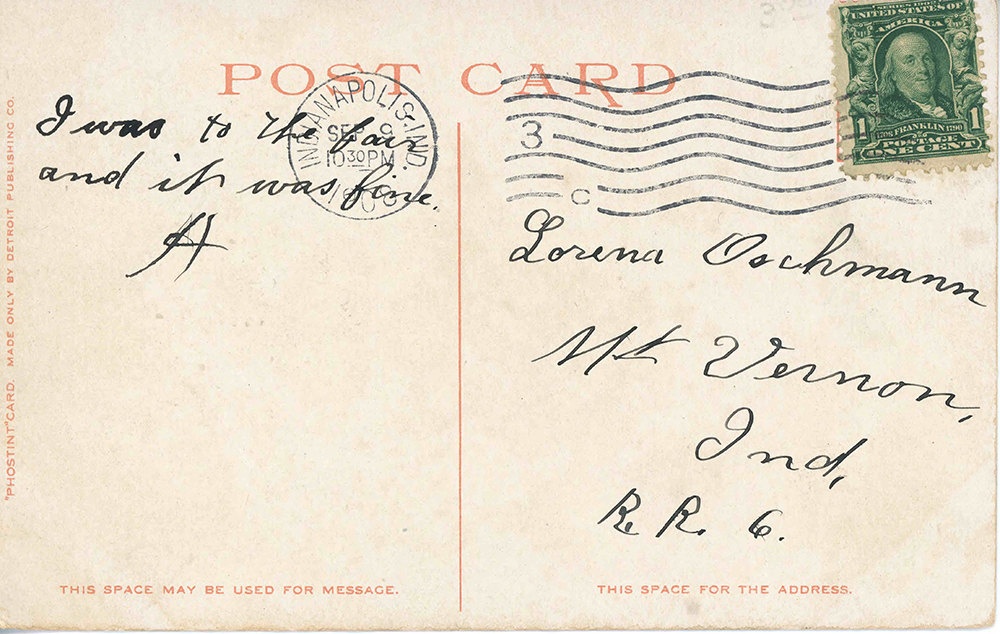 POST CARD
SERIES 1902
UNITED STATES OF
AMERICA
1 1
1706 FRANKLIN 1790
POSTAGE
ONE CENT
INDIANAPOLIS, IND.
SEP 9
10 30 PM
3
C
I was to the fair
and it was fine.
A
Lorena Oschmann
Mt Vernon,
Ind,
R. R. 6.
"PHOSTINT" CARD. MADE ONLY BY DETROIT PUBLISHING CO.
THIS SPACE MAY BE USED FOR MESSAGE.
THIS SPACE FOR THE ADDRESS.